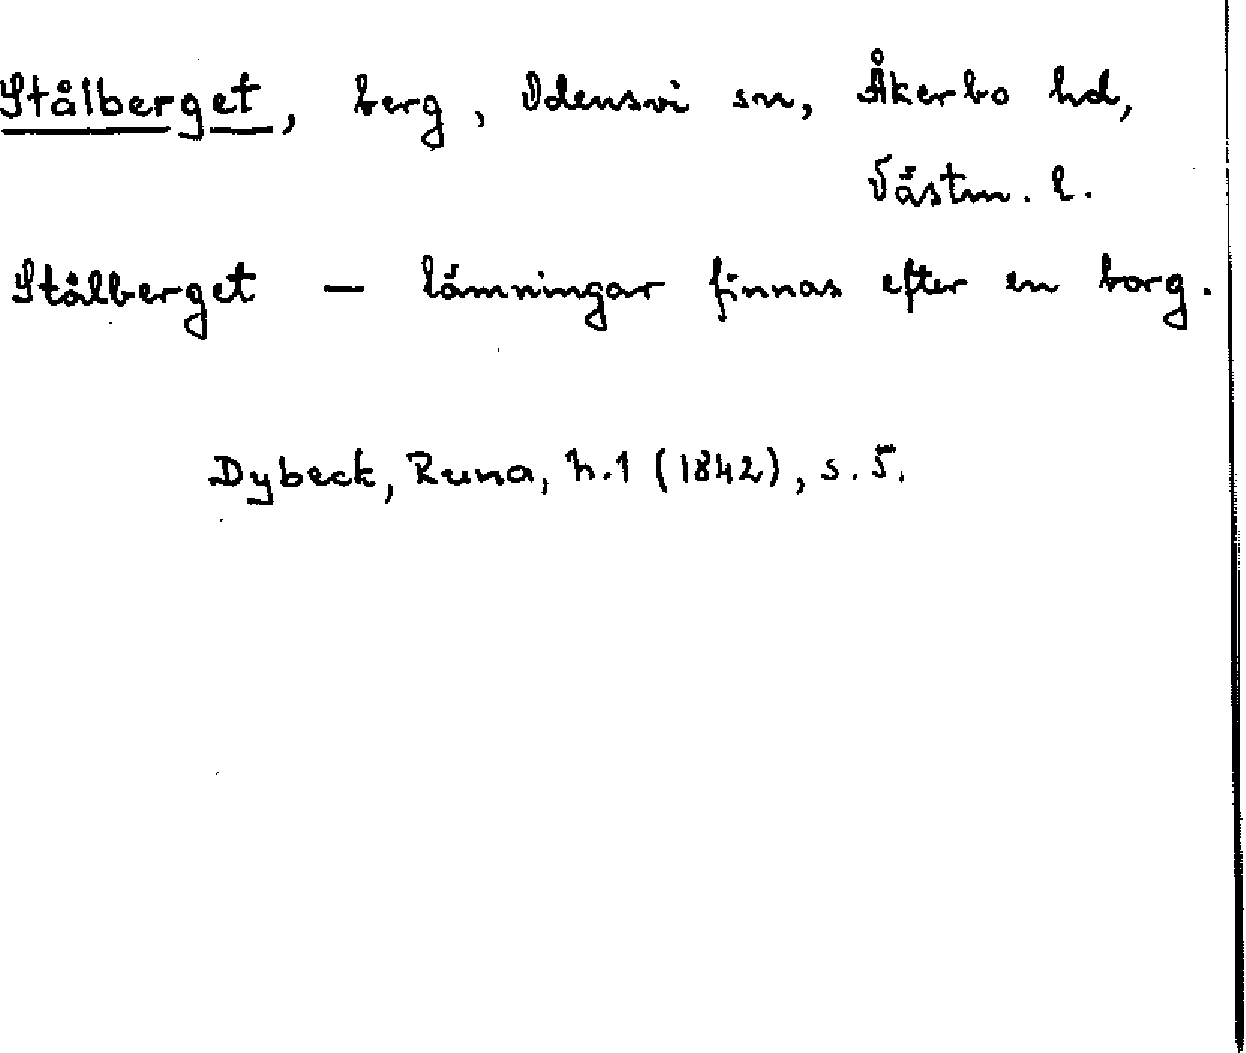 Stålberget, berg, Odensvi sn, Åkerbo hd,
Västm. l.
Stålberget — lämningar finnas efter en borg.
Dybeck, Runa, h.1 (1842), s. 5.